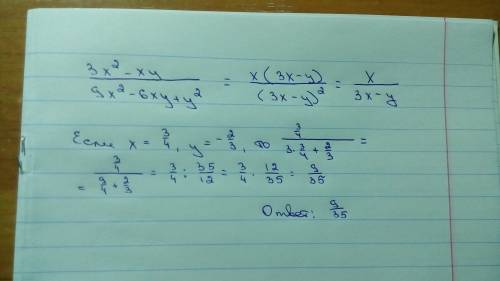 (3x² - xy)/(9x² - 6xy + y²) = x(3x-y)/(3x-y)² = x/(3x-y)
Если x = 3/4, y = -2/3, то (3/4)/(3·3/4 + 2/3) =
= (3/4)/(9/4 + 2/3) = 3/4 : 35/12 = 3/4 · 12/35 = 9/35
Ответ: 9/35